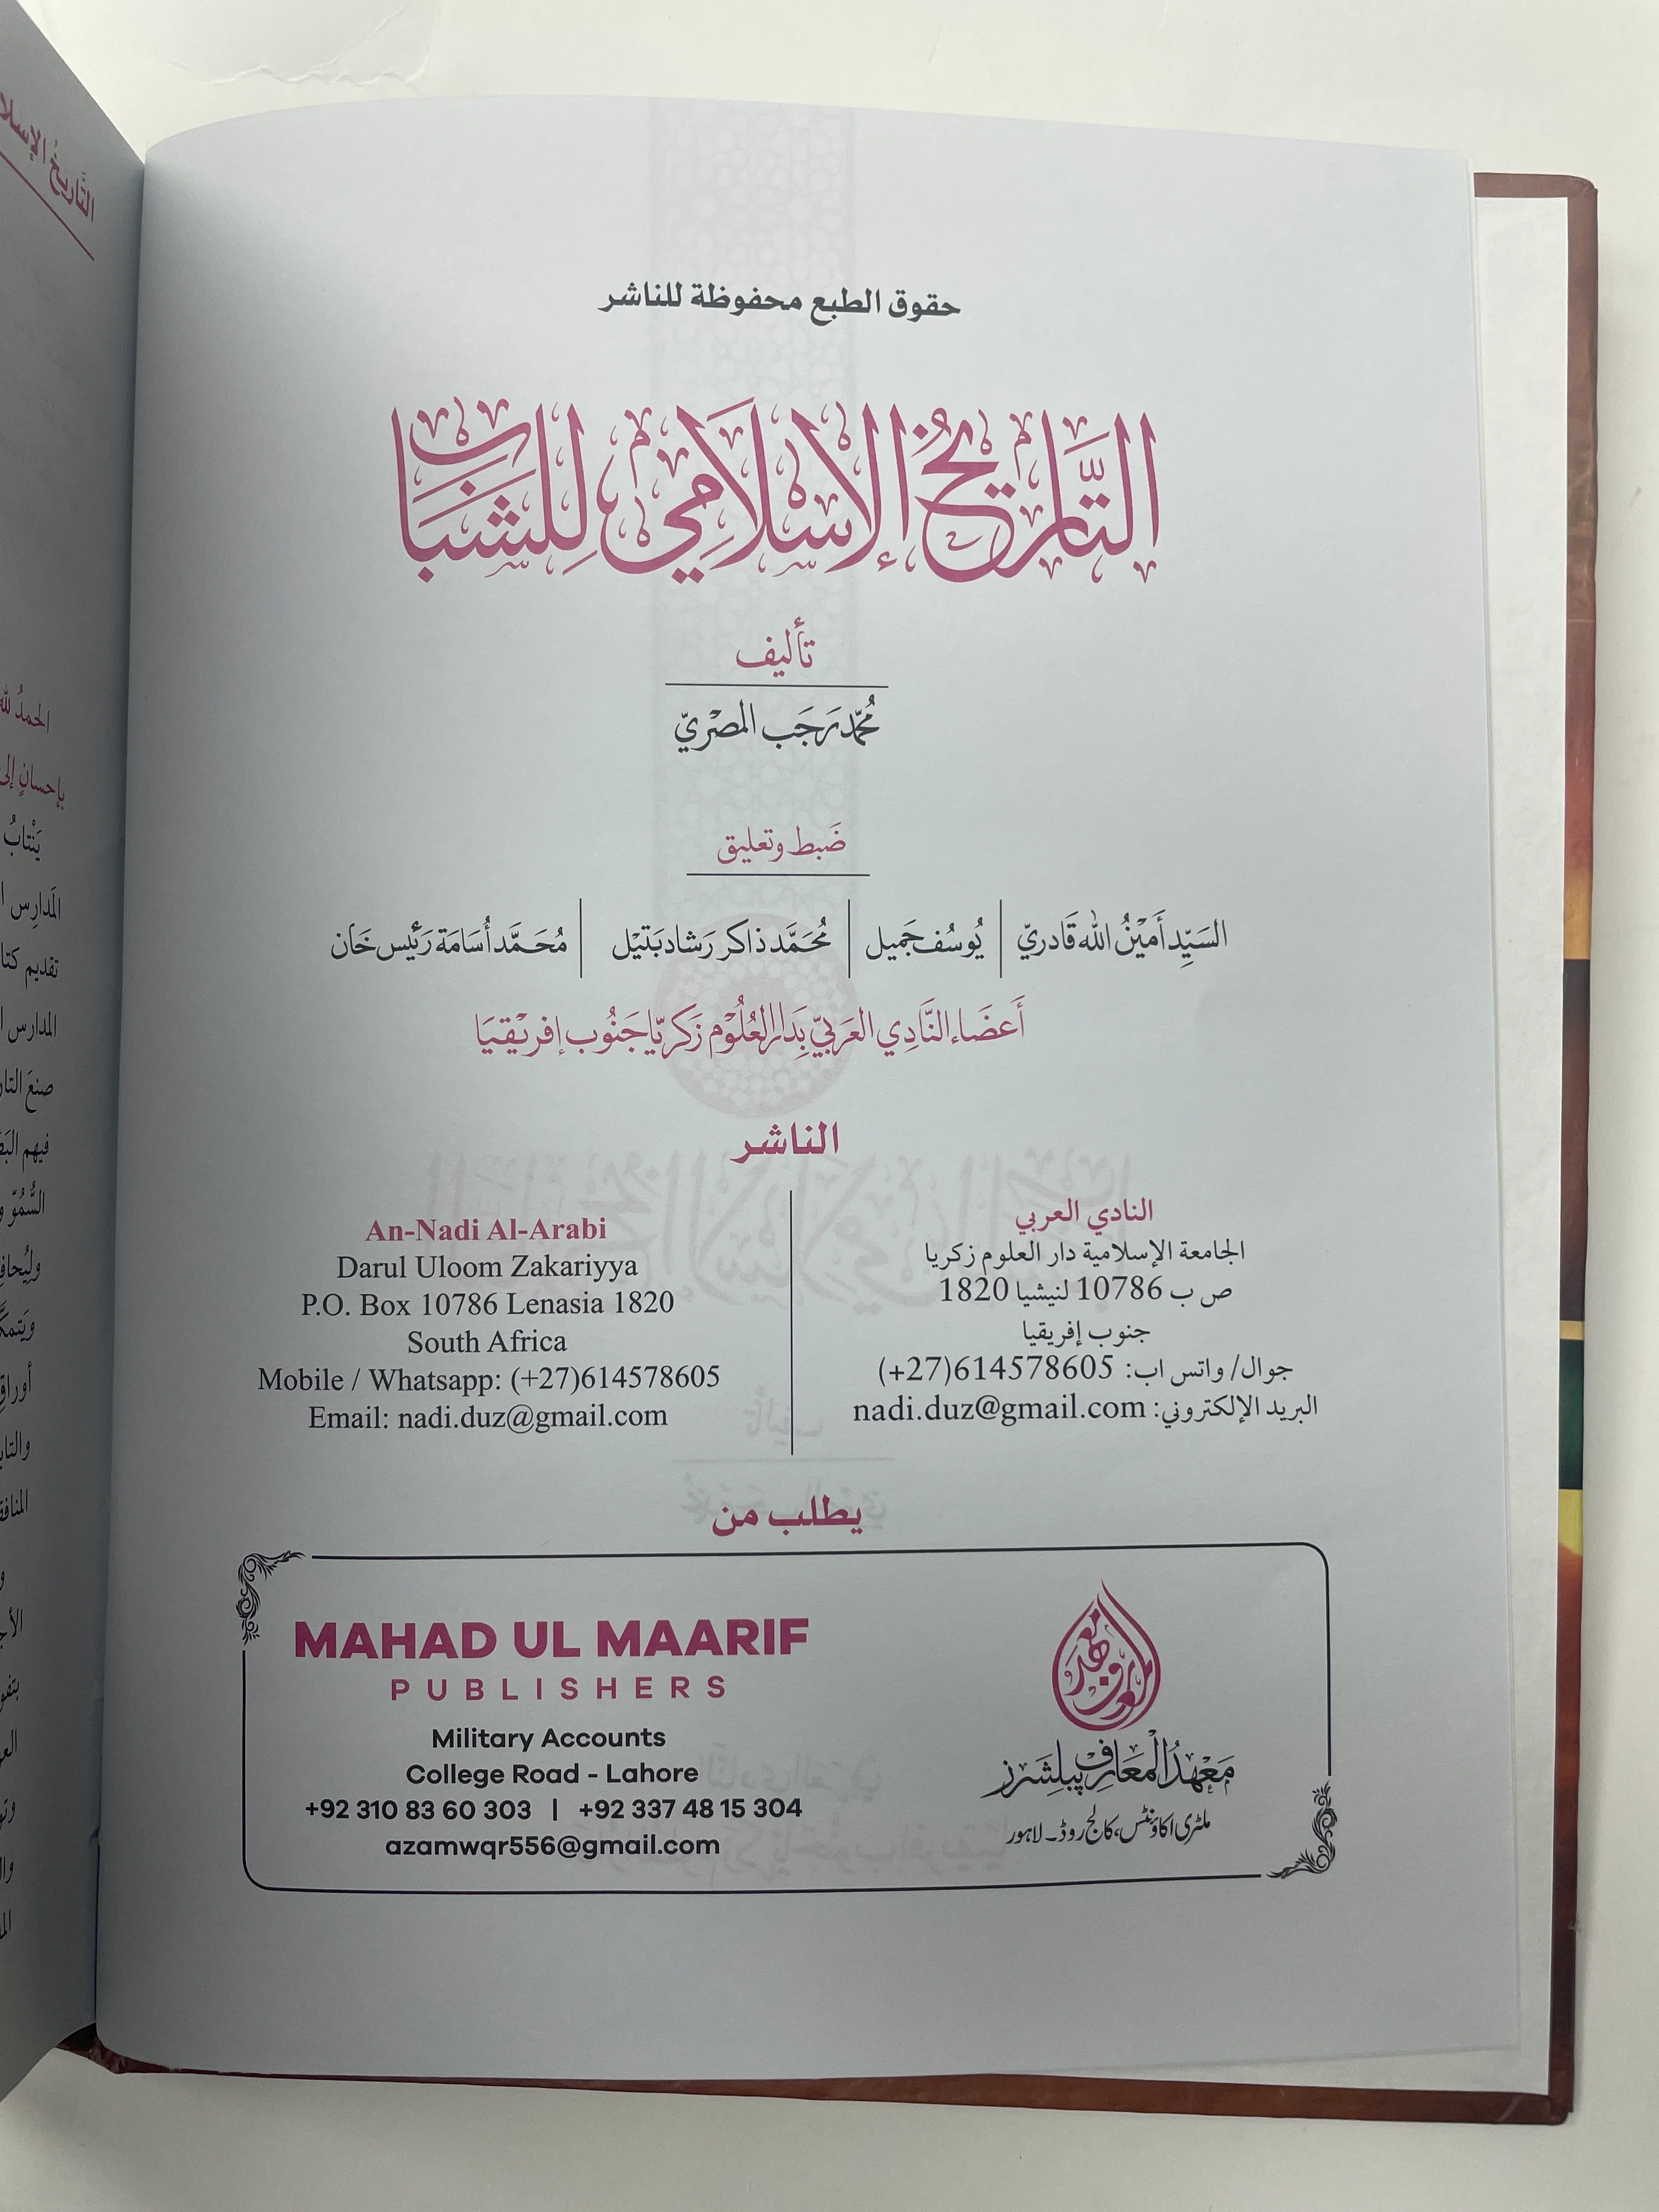 حقوق الطبع محفوظة للناشر
التَّاريخُ الإسلامي لِلشَّبَاب
تأليف
مُحَمّد رَجَب المصْريّ
ضَبط وتعليق
السَيِّد أَمِيْنُ الله قَادريّ | يُوسُف جَميل | مُحَمَّد ذاكر رَشاد بَتيْل | مُحَمَّد أُسَامَة رَئيس خَان
أَعضَاء النَّادِي العَرَبيّ بِدَار العُلُوْم زَكريّا جَنُوب إفريْقيَا
الناشر
النادي العربي
الجامعة الإسلامية دار العلوم زكريا
ص ب 10786 لنيشيا 1820
جنوب إفريقيا
جوال/ واتس اب: 614578605(27+)
البريد الإلكتروني: nadi.duz@gmail.com
An-Nadi Al-Arabi
Darul Uloom Zakariyya
P.O. Box 10786 Lenasia 1820
South Africa
Mobile / Whatsapp: (+27)614578605
Email: nadi.duz@gmail.com
يطلب من
MAHAD UL MAARIF
PUBLISHERS
Military Accounts
College Road - Lahore
+92 310 83 60 303 | +92 337 48 15 304
azamwqr556@gmail.com
معهد المعارف
مَعْهَدُ الْمَعَارِف پبلِشَرز
ملٹری اکاؤنٹس، کالج روڈ ۔ لاہور
التَّاريخُ الإسلا
الحمدُ لله
بإحسانٍ إلى
يَنْتابُ
المَدارِس
تقديم
المدارس
صنعَ
فيهم
السُّمُوّ